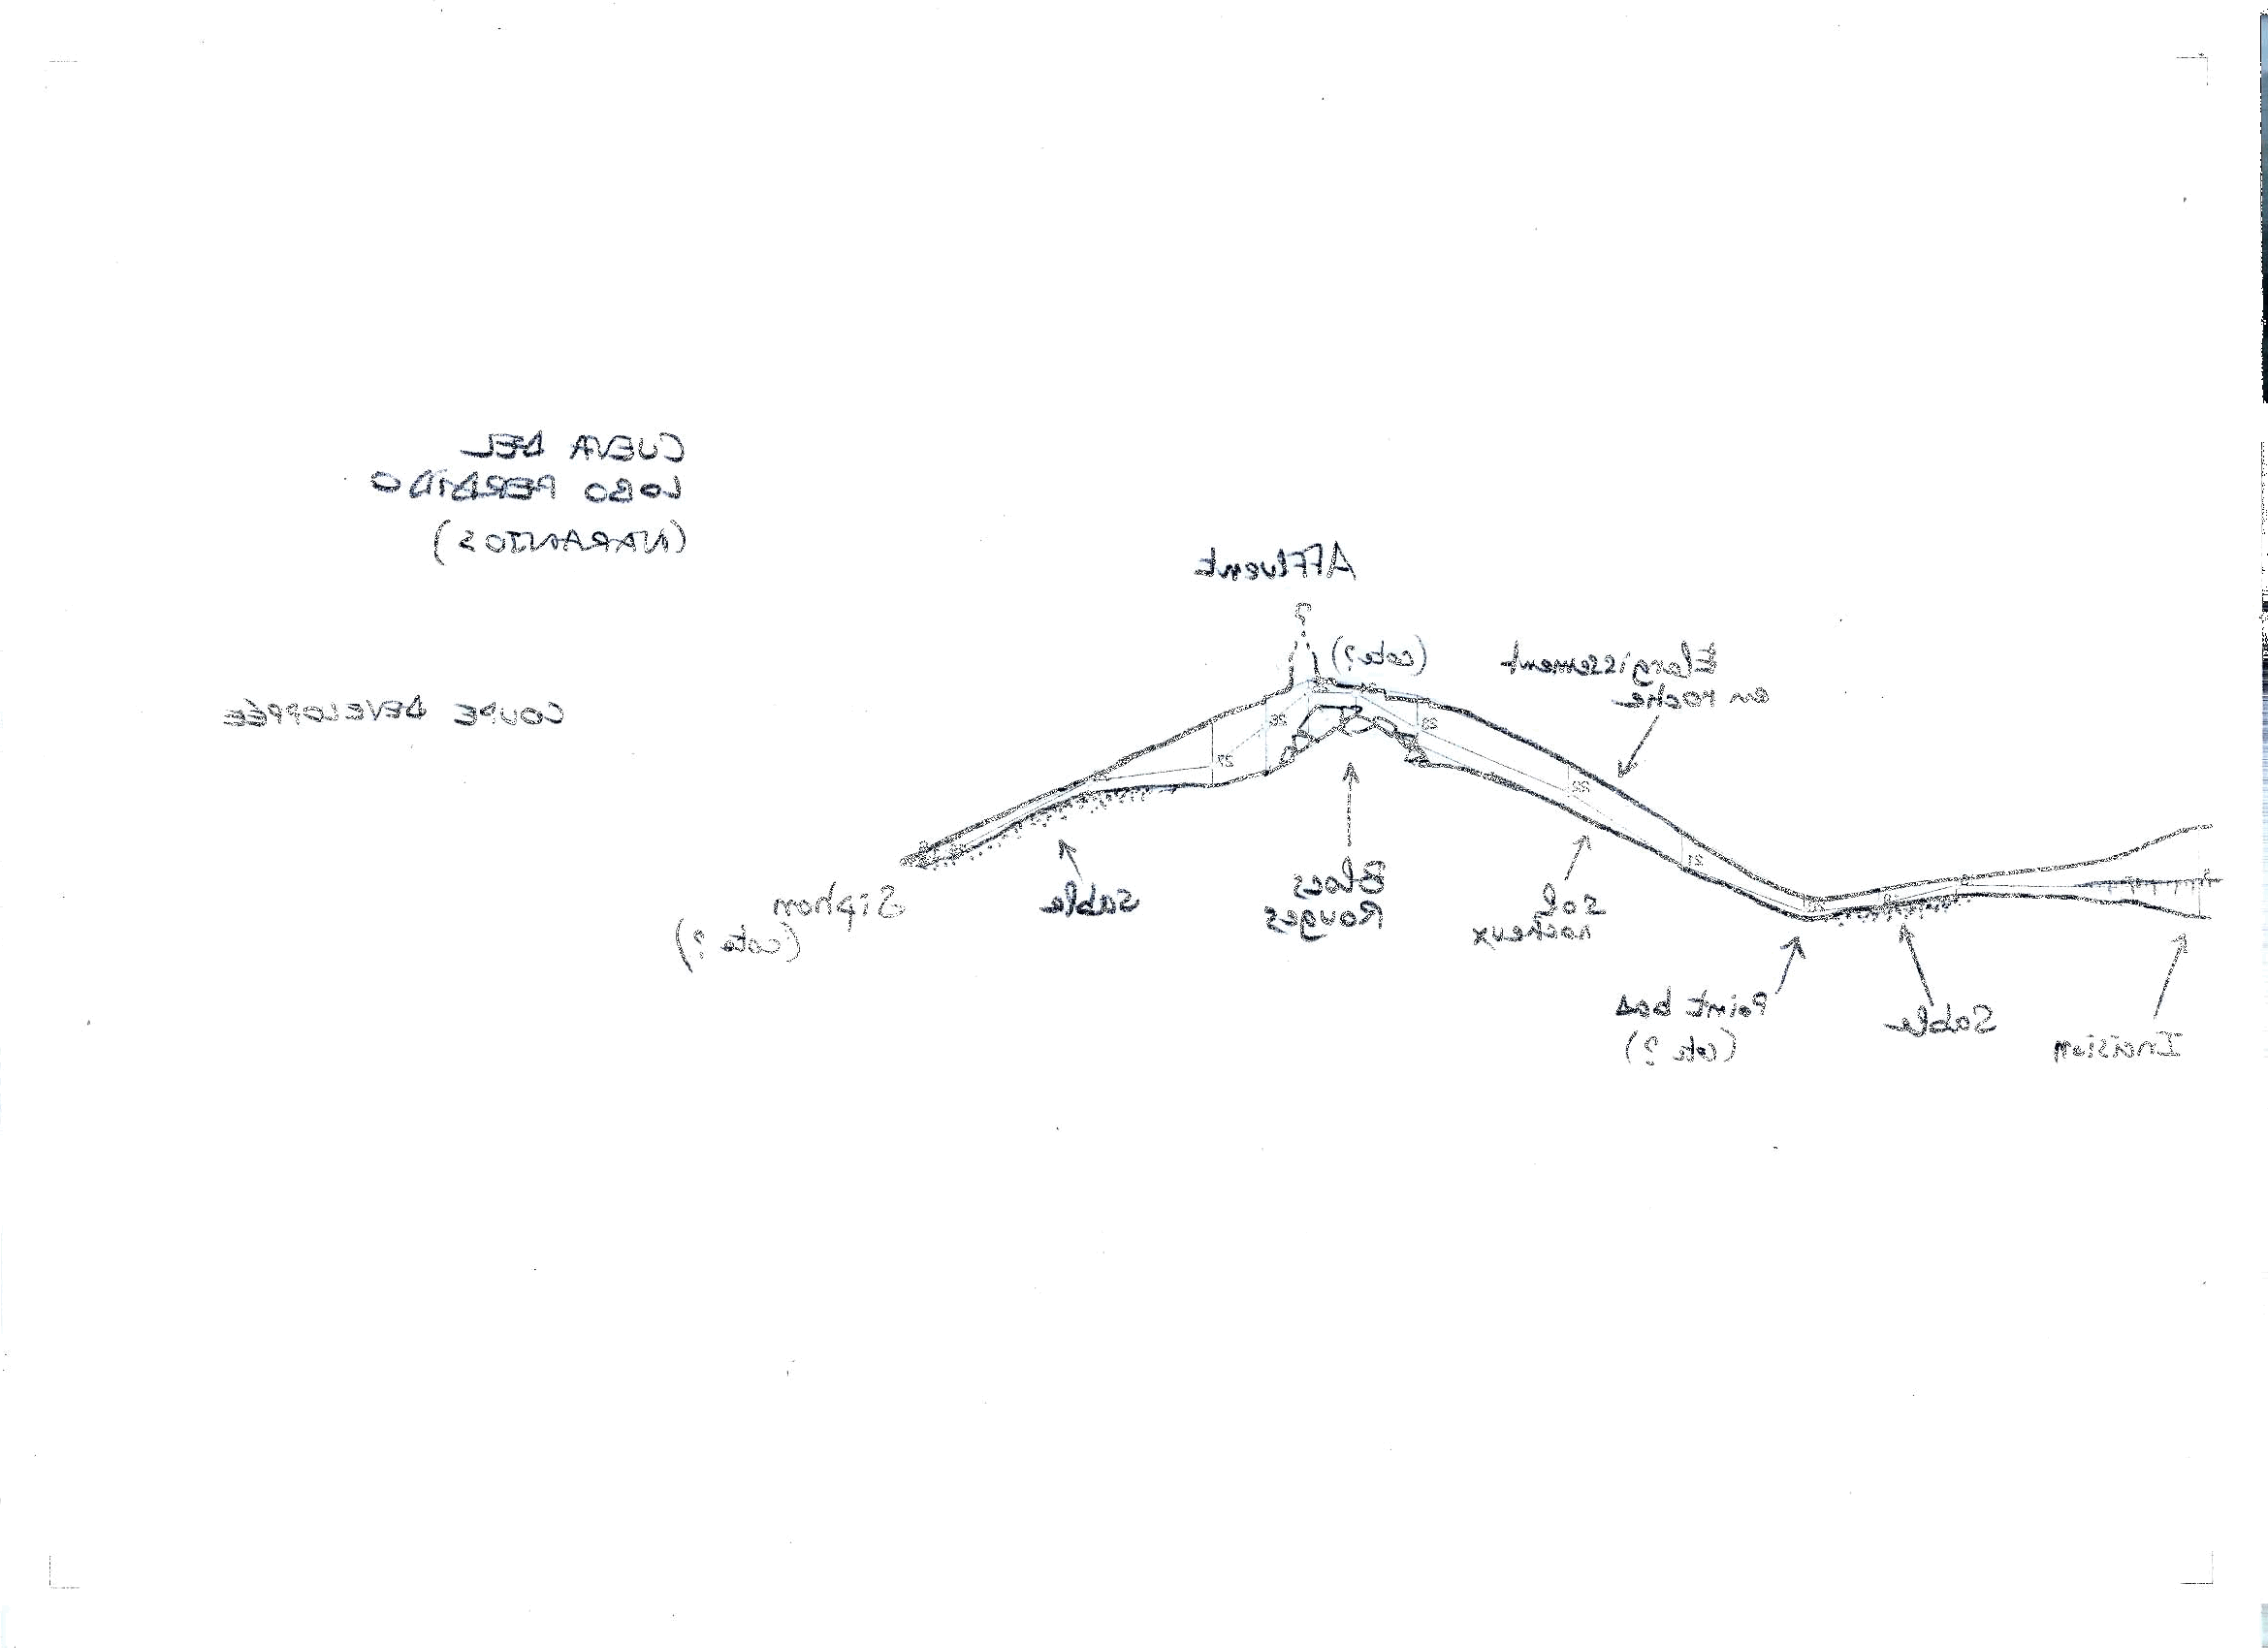 CUEVA DEL
LOBO PERDIDO
(NARANJOS)
COUPE DEVELOPPÉE
Affluent
?
(cote?)
Elargissement
en roche
26
27
22
21
Siphon
(cote ?)
Sable
Blocs
Rouges
sol
rocheux
Point bas
(cote ?)
Sable
Incision